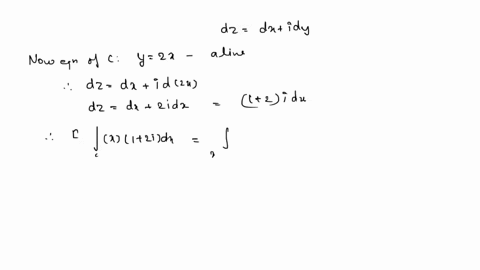 dz = dx + idy
Now eqn of C: y = 2x - a line
∴ dz = dx + i d(2x)
dz = dx + 2idx = (1+2)i dx
∴ [ ∫c (x)(1+2i)dx = ∫